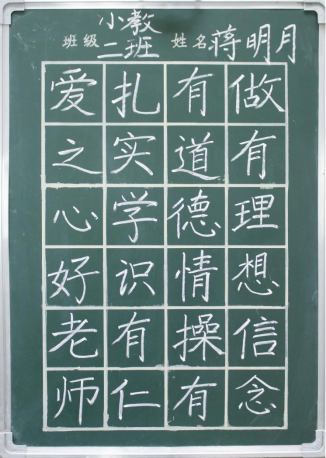 班级 小教二班 姓名 蒋明月
做有理想信念
有道德情操有
扎实学识有仁
爱之心好老师